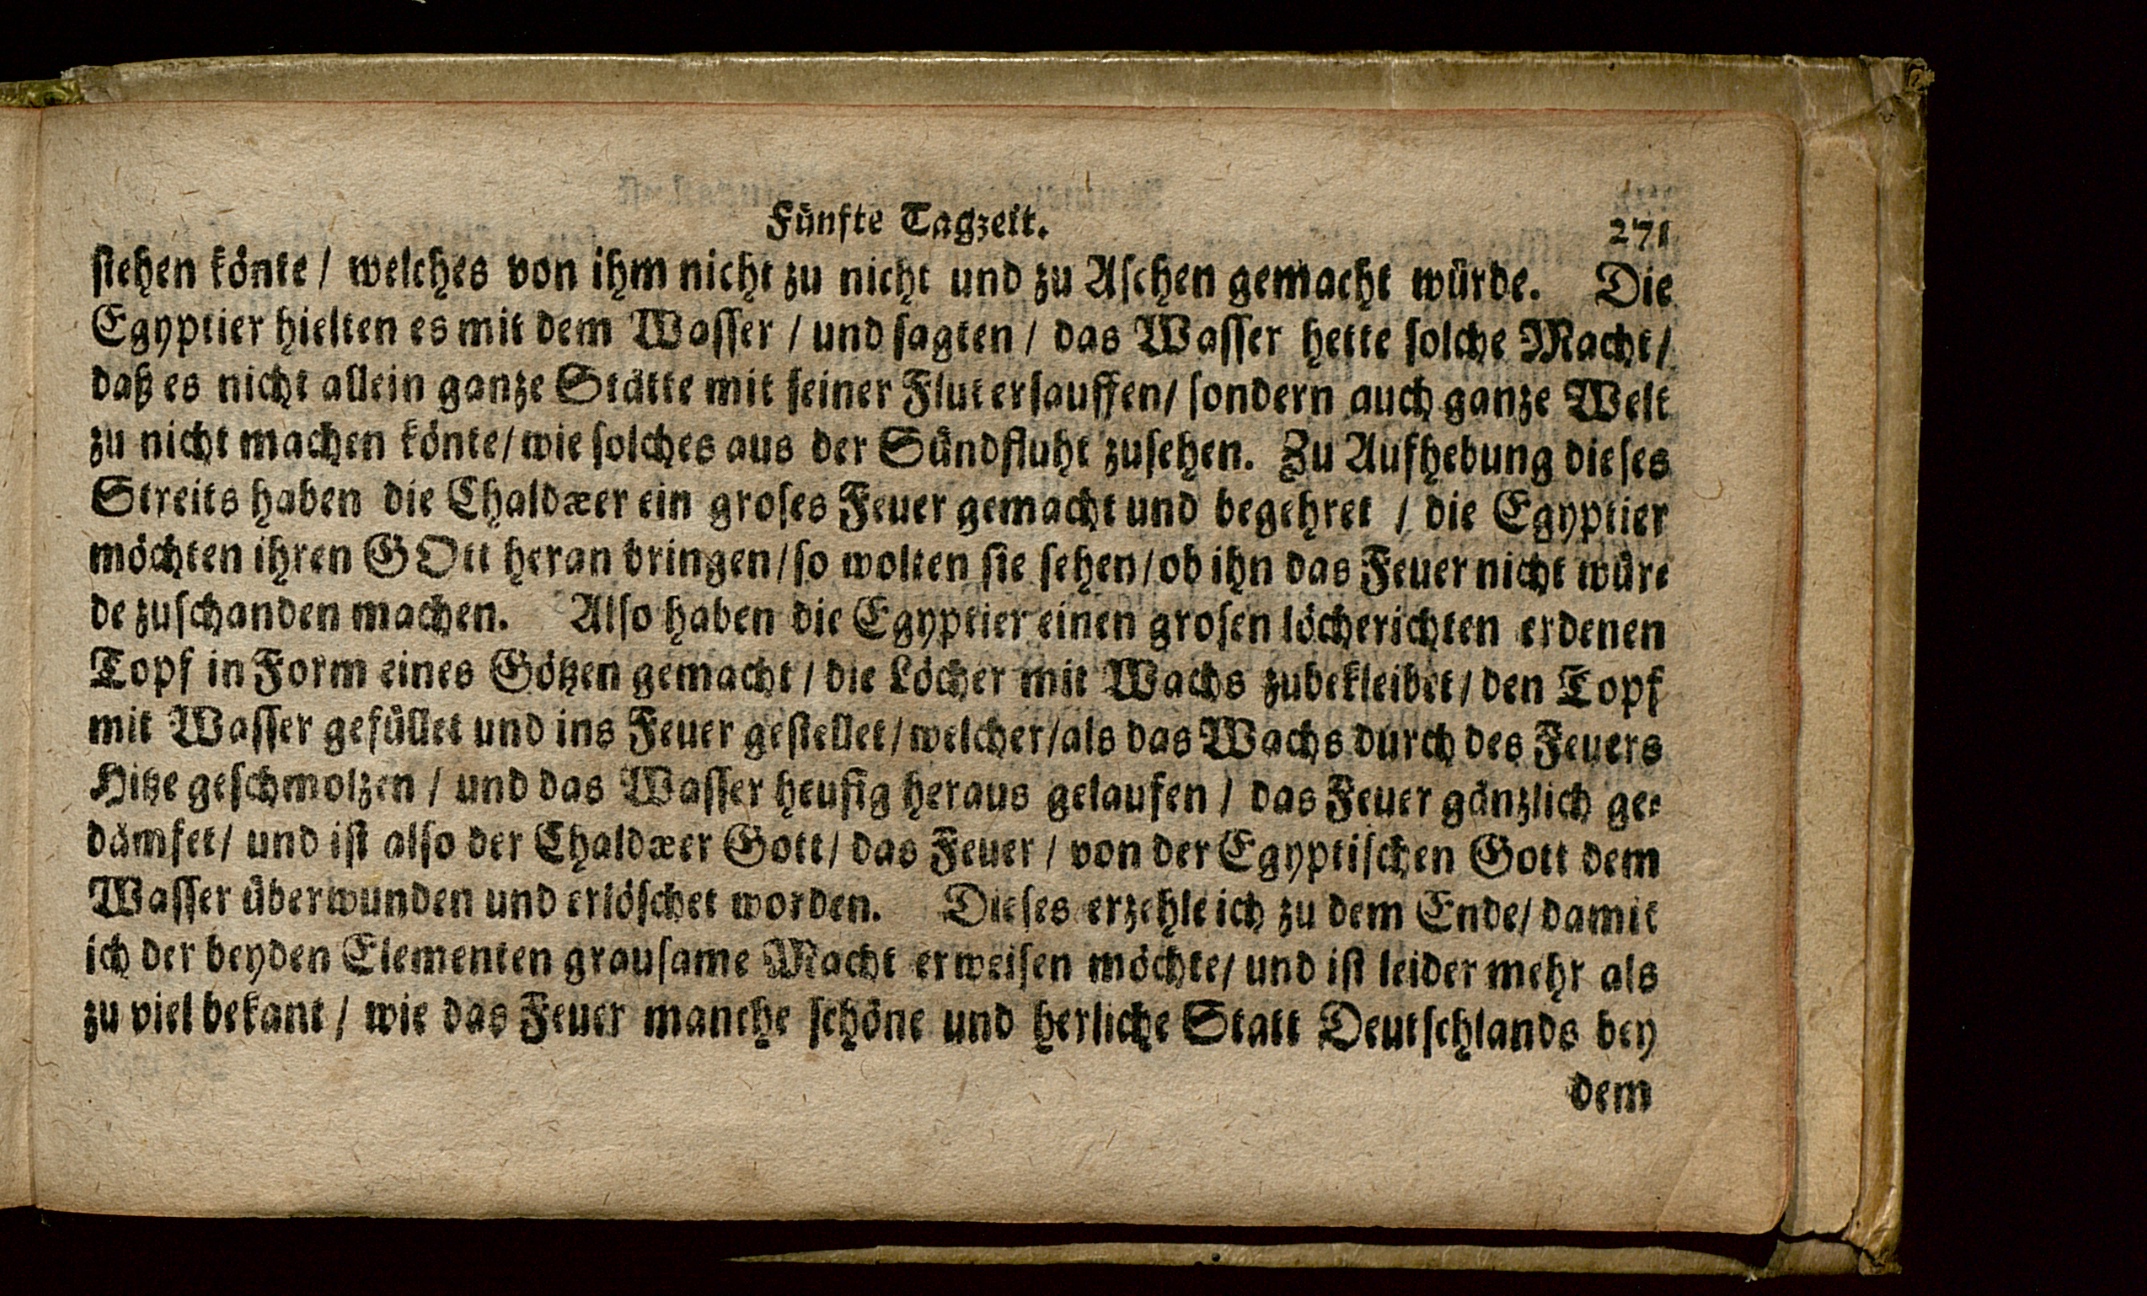 Fünfte Tagzeit. 271
stehen könte / welches von ihm nicht zu nicht und zu Aschen gemacht würde. Die
Egyptier hielten es mit dem Wasser / und sagten / das Wasser hette solche Macht /
daß es nicht allein ganze Stätte mit seiner Flut ersauffen / sondern auch ganze Welt
zu nicht machen könte / wie solches aus der Sündfluht zusehen. Zu Aufhebung dieses
Streits haben die Chaldæer ein groses Feuer gemacht und begehret / die Egyptier
möchten ihren GOtt heran bringen / so wolten sie sehen / ob ihn das Feuer nicht wür-
de zuschanden machen. Also haben die Egyptier einen grosen löcherichten erdenen
Topf in Form eines Götzen gemacht / die Löcher mit Wachs zubekleibet / den Topf
mit Wasser gefüllet und ins Feuer gestellet / welcher / als das Wachs durch des Feuers
Hitze geschmolzen / und das Wasser heufig heraus gelaufen / das Feuer gänzlich ge-
dämfet / und ist also der Chaldæer Gott / das Feuer / von der Egyptischen Gott dem
Wasser überwunden und erlöschet worden. Dieses erzehle ich zu dem Ende / damit
ich der beyden Elementen grausame Macht erweisen möchte / und ist leider mehr als
zu viel bekant / wie das Feuer manche schöne und herliche Statt Deutschlands bey
dem